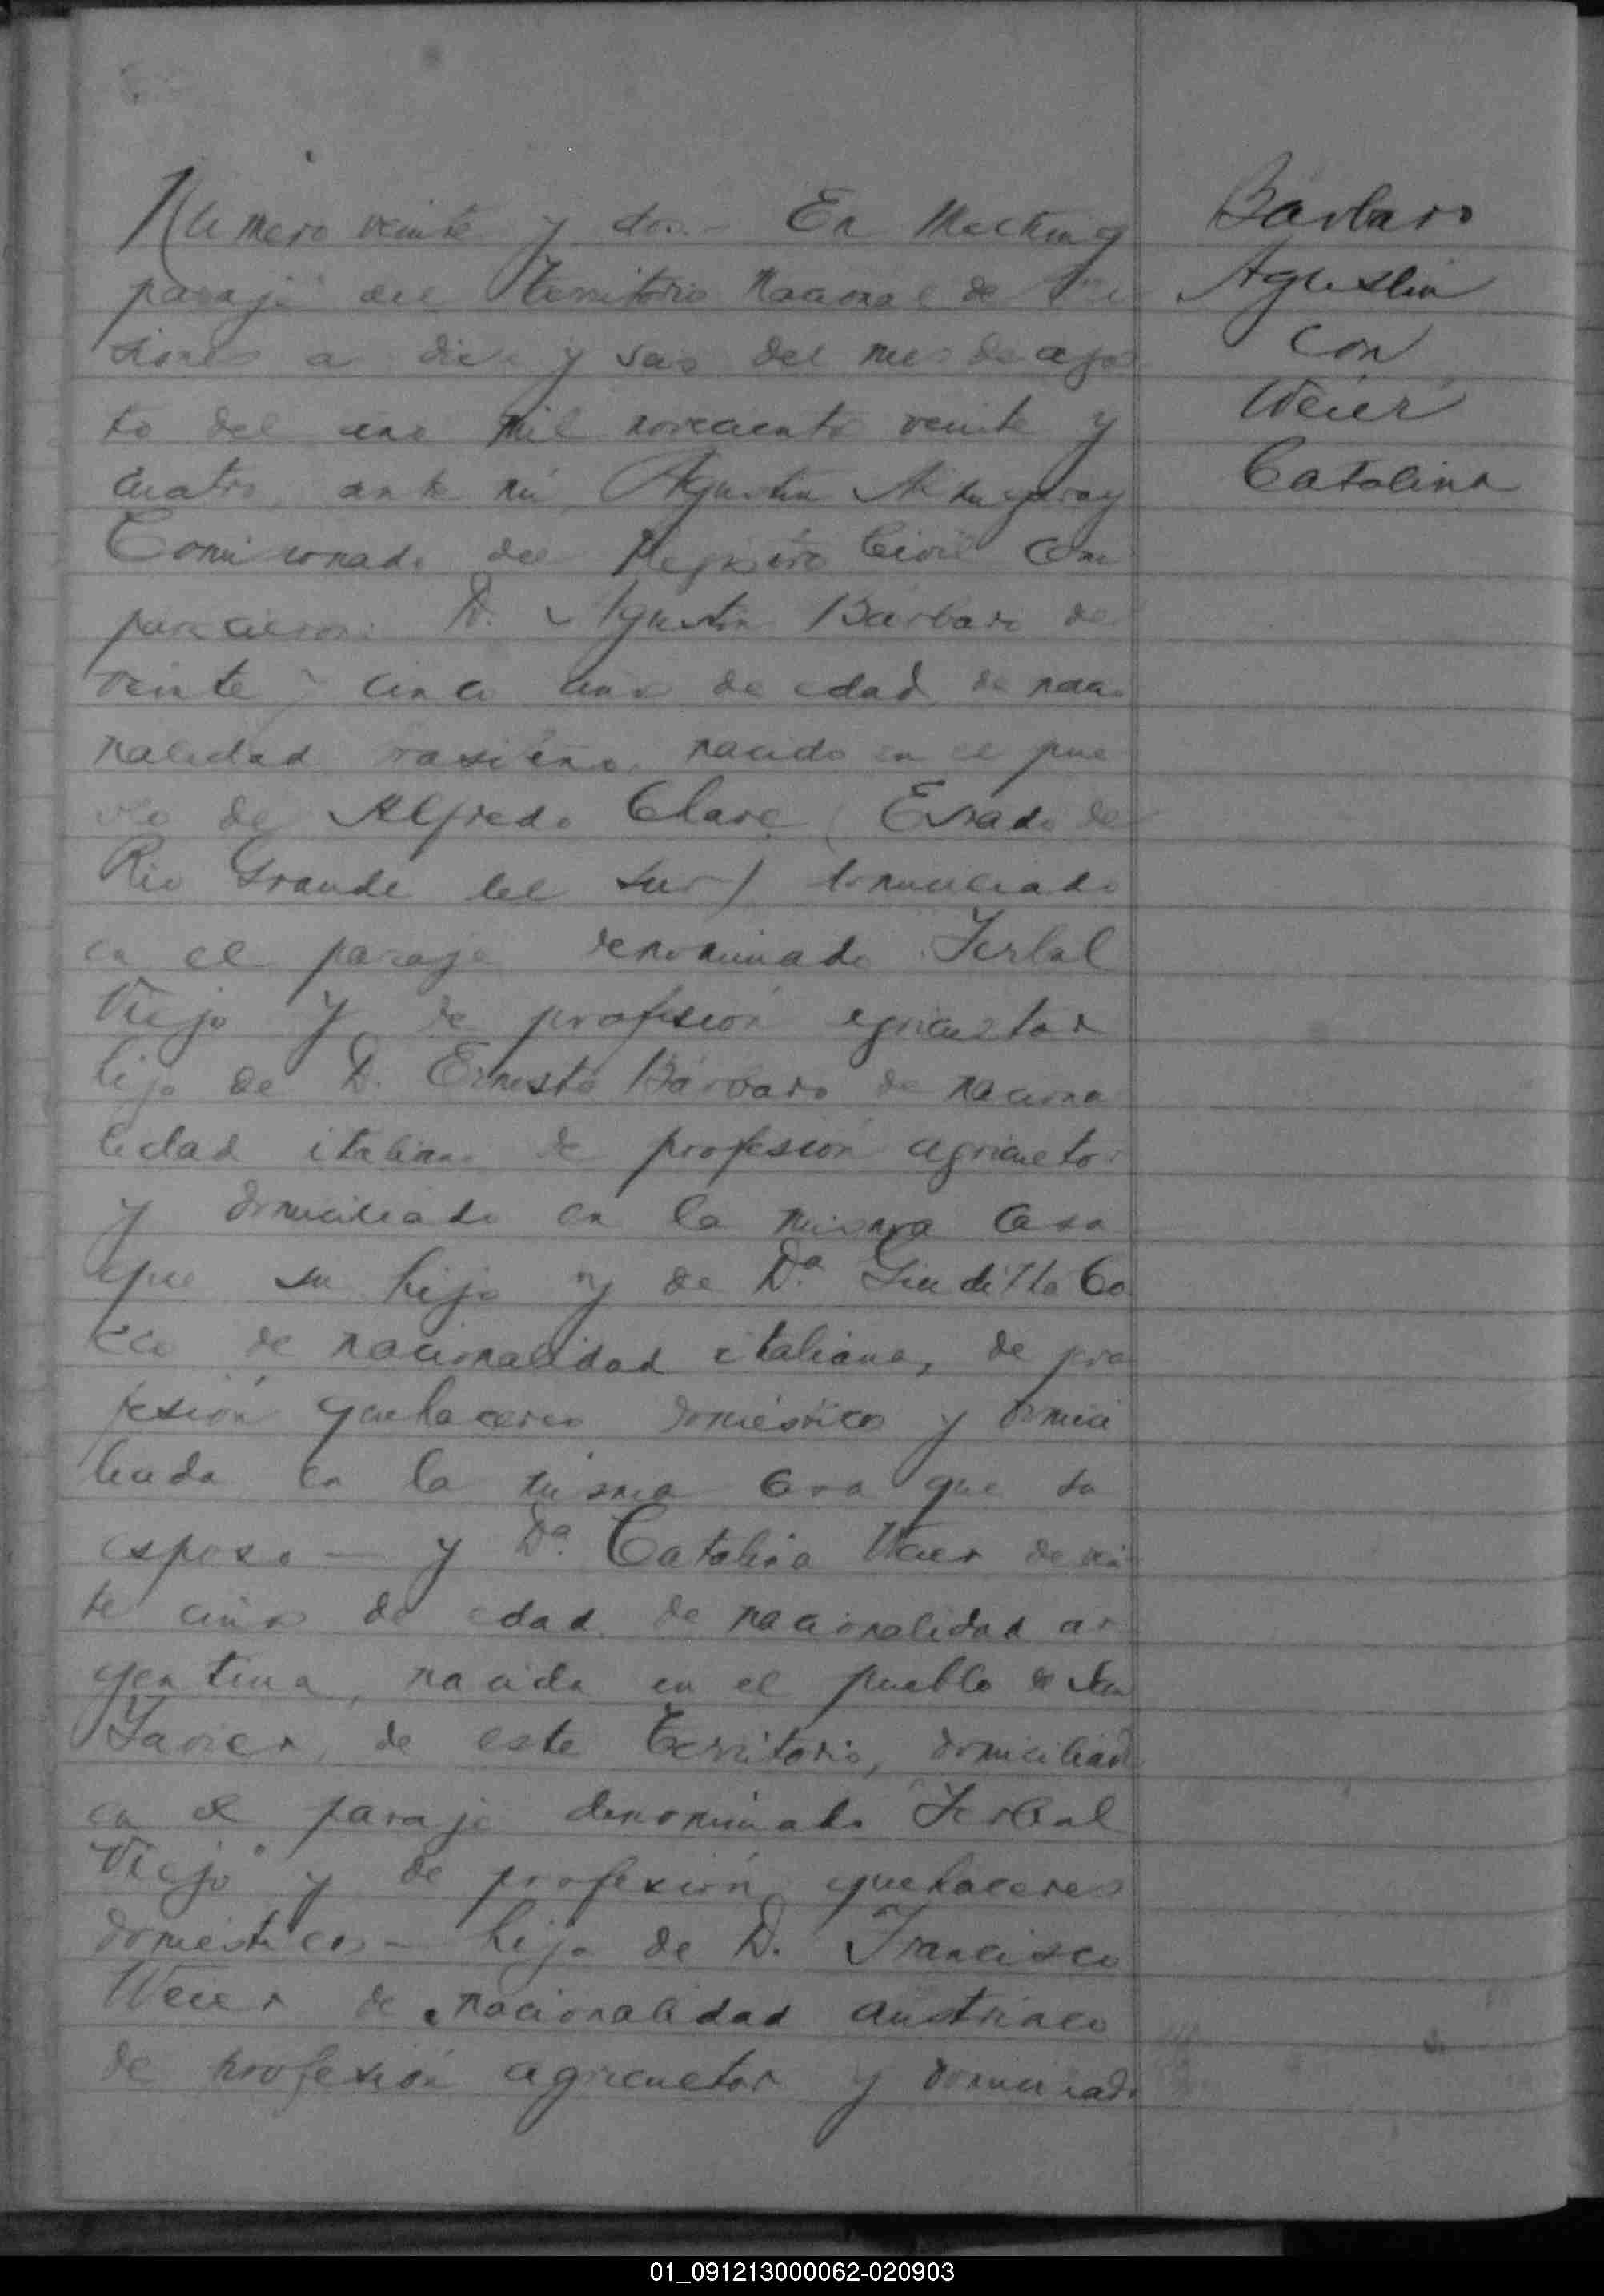 Numero veinte y dos.- En Mecking
paraje del Territorio Nacional de Mi
siones a diez y seis del mes de agos
to del año mil novecientos veinte y
cuatro, ante mi, Agustin
Comisionado del Registro Civil Com
parecieron: D. Agustin Bárbaro de
veinte y cinco años de edad, de nacio
nalidad brasileño, nacido en el pue
blo de Alfredo Chave (Estado de
Rio Grande del Sur) domiciliado
en el paraje denominado Yerbal
Viejo y de profesión agricultor
hijo de D. Ernesto Bárbaro de naciona
lidad italiano de profesión agricultor
y domiciliado en la misma casa
que su hijo y de Dª. Giuditta Co
de nacionalidad italiana, de pro
fesión quehaceres domésticos y domici
liada en la misma casa que su
esposo — y Dª. Catalina Weier de vein
te años de edad de nacionalidad ar
gentina, nacida en el pueblo de San
Javier, de este Territorio, domiciliada
en el paraje denominado Yerbal
Viejo" y de profesión quehaceres
domésticos - hija de D. Francisco
Weier de nacionalidad austriaco
de profesión agricultor y domiciliado
Bárbaro
Agustin
con
Weier
Catalina
01_091213000062-020903